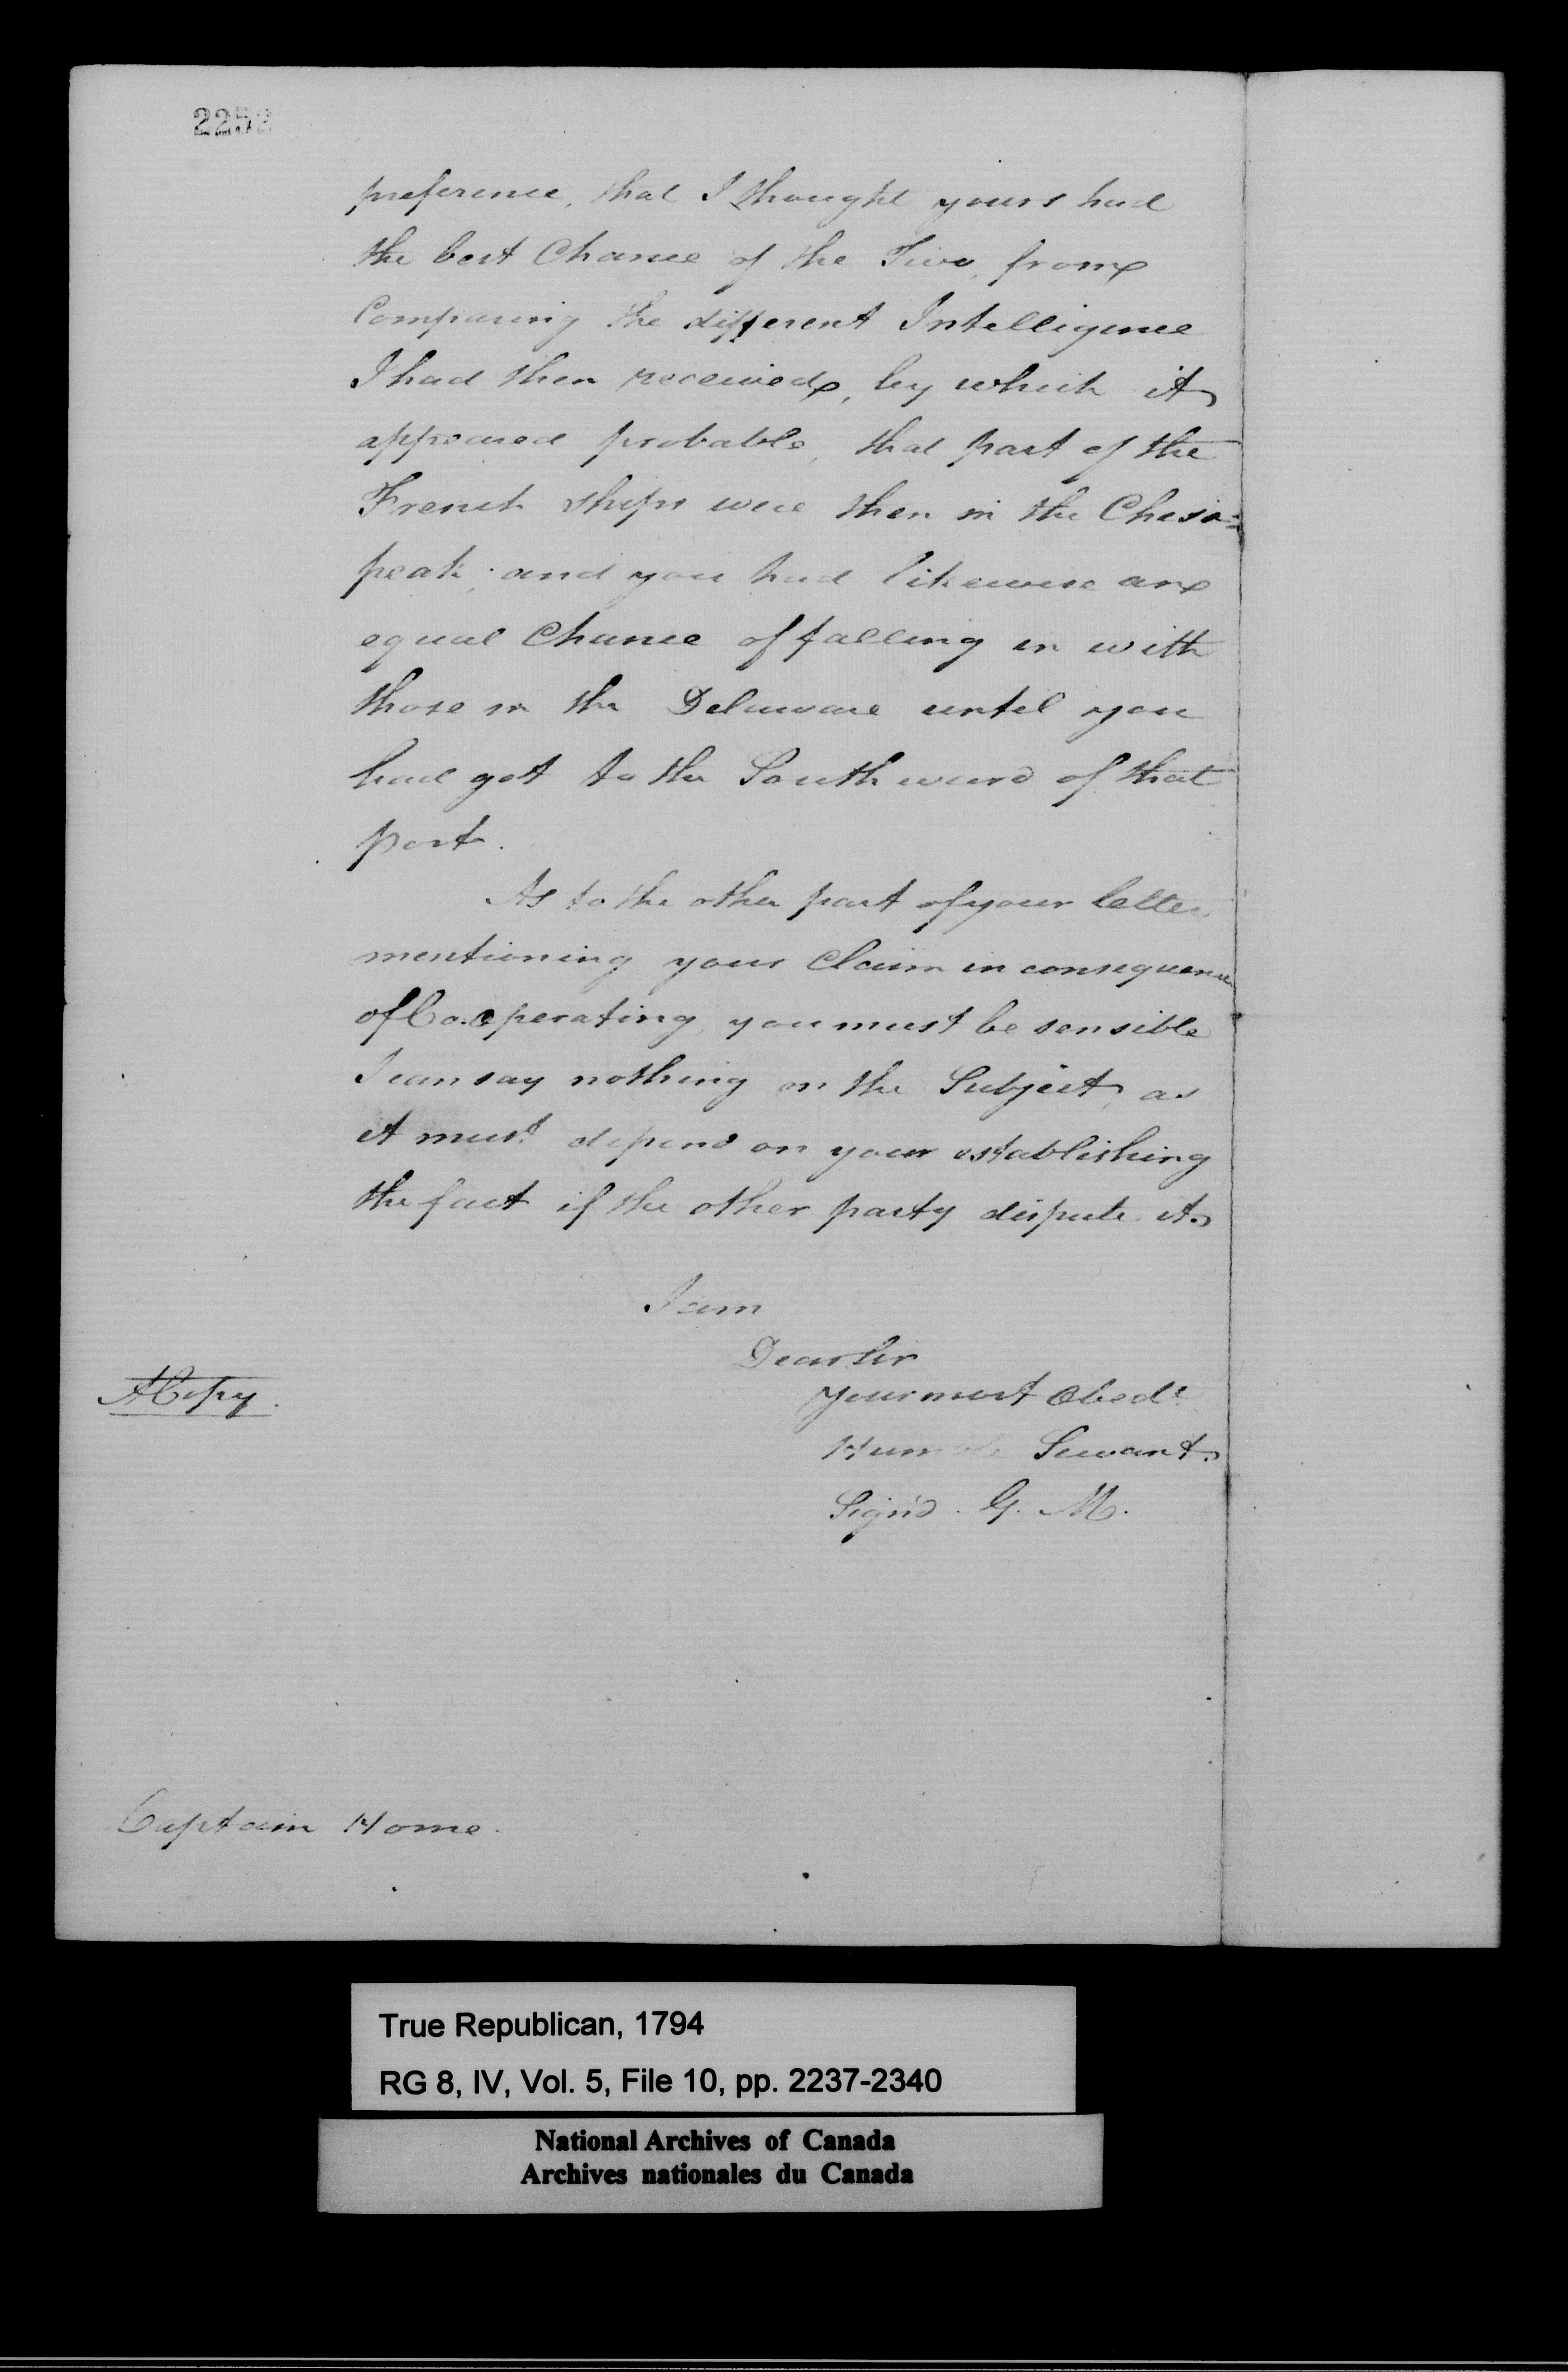 2252
preference, that I thought yours had
the best Chance of the Two, from
Comparing the different Intelligence
I had then received, by which it
appeared probable, that part of the
French ships were then in the Chesa=
peak; and you had likewise an
equal Chance of falling in with
those in the Delaware until you
had got to the Southward of that
port.
As to the other part of your letter
mentioning your Claim in consequence
of Co.operating, you must be sensible
I can say nothing on the Subject, as
it must depend on your establishing
the fact if the other party dispute it.
I am
Dear Sir
Your most Obedt
Humble Servant.
Sign'd. G. M.
A Copy.
Captain Home.
True Republican, 1794
RG 8, IV, Vol. 5, File 10, pp. 2237-2340
National Archives of Canada
Archives nationales du Canada